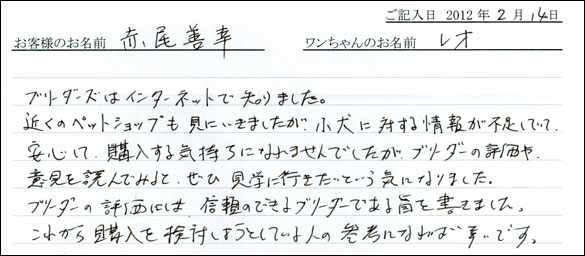 ご記入日 2012年2月14日
お客様のお名前 赤尾善幸 ワンちゃんのお名前 レオ
ブリーダーズはインターネットで知りました。
近くのペットショップも見にいきましたが、小犬に対する情報が不足していて、
安心して、購入する気持ちになれませんでしたが、ブリーダーの評価や、
意見を読んでみると、ぜひ見学に行きたいという気になりました。
ブリーダーの評価には、信頼のできるブリーダーである旨を書きました。
これから購入を検討しようとしている人の参考になれば幸いです。